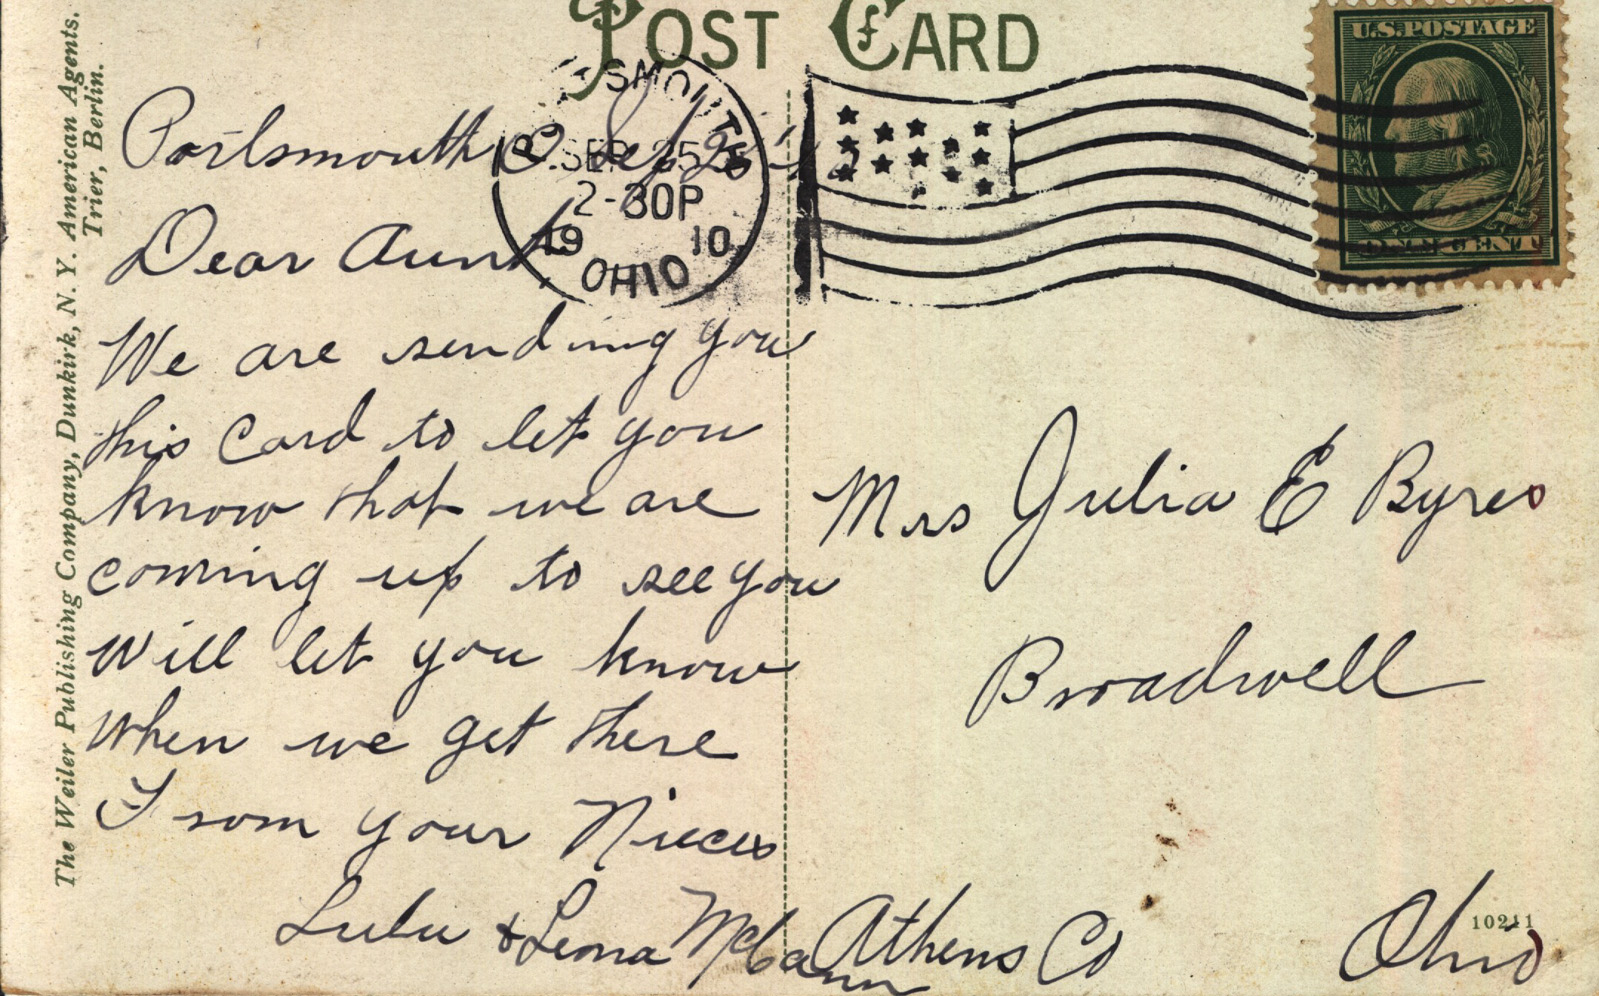 POST CARD
The Weiler Publishing Company, Dunkirk, N. Y. American Agents.
Trier, Berlin.
U.S. POSTAGE
ONE CENT
SMOUTH
SEP 25
2-30P
19 10
OHIO
Portsmouth O. Sep 25
Dear Aunt
We are sending you
this Card to let you
know that we are
coming up to see you
Will let you know
when we get there
From your Nieces
Lulu & Leona McCann
Mrs Julia E Byres
Broadwell
Athens Co Ohio
10211